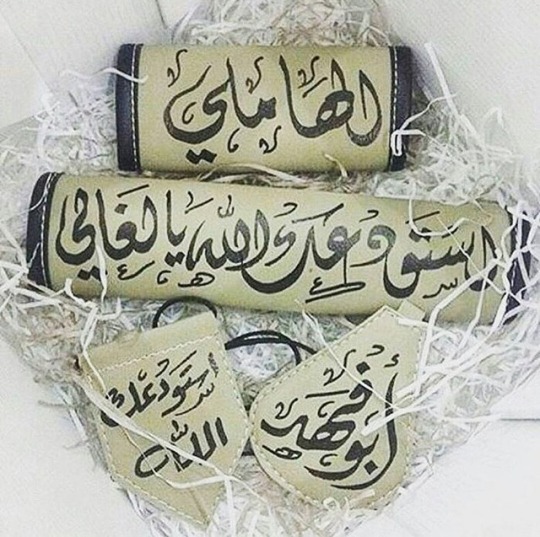 الهاملي
استودعك الله يالغالي
استودعتك
الله
أبو فهد